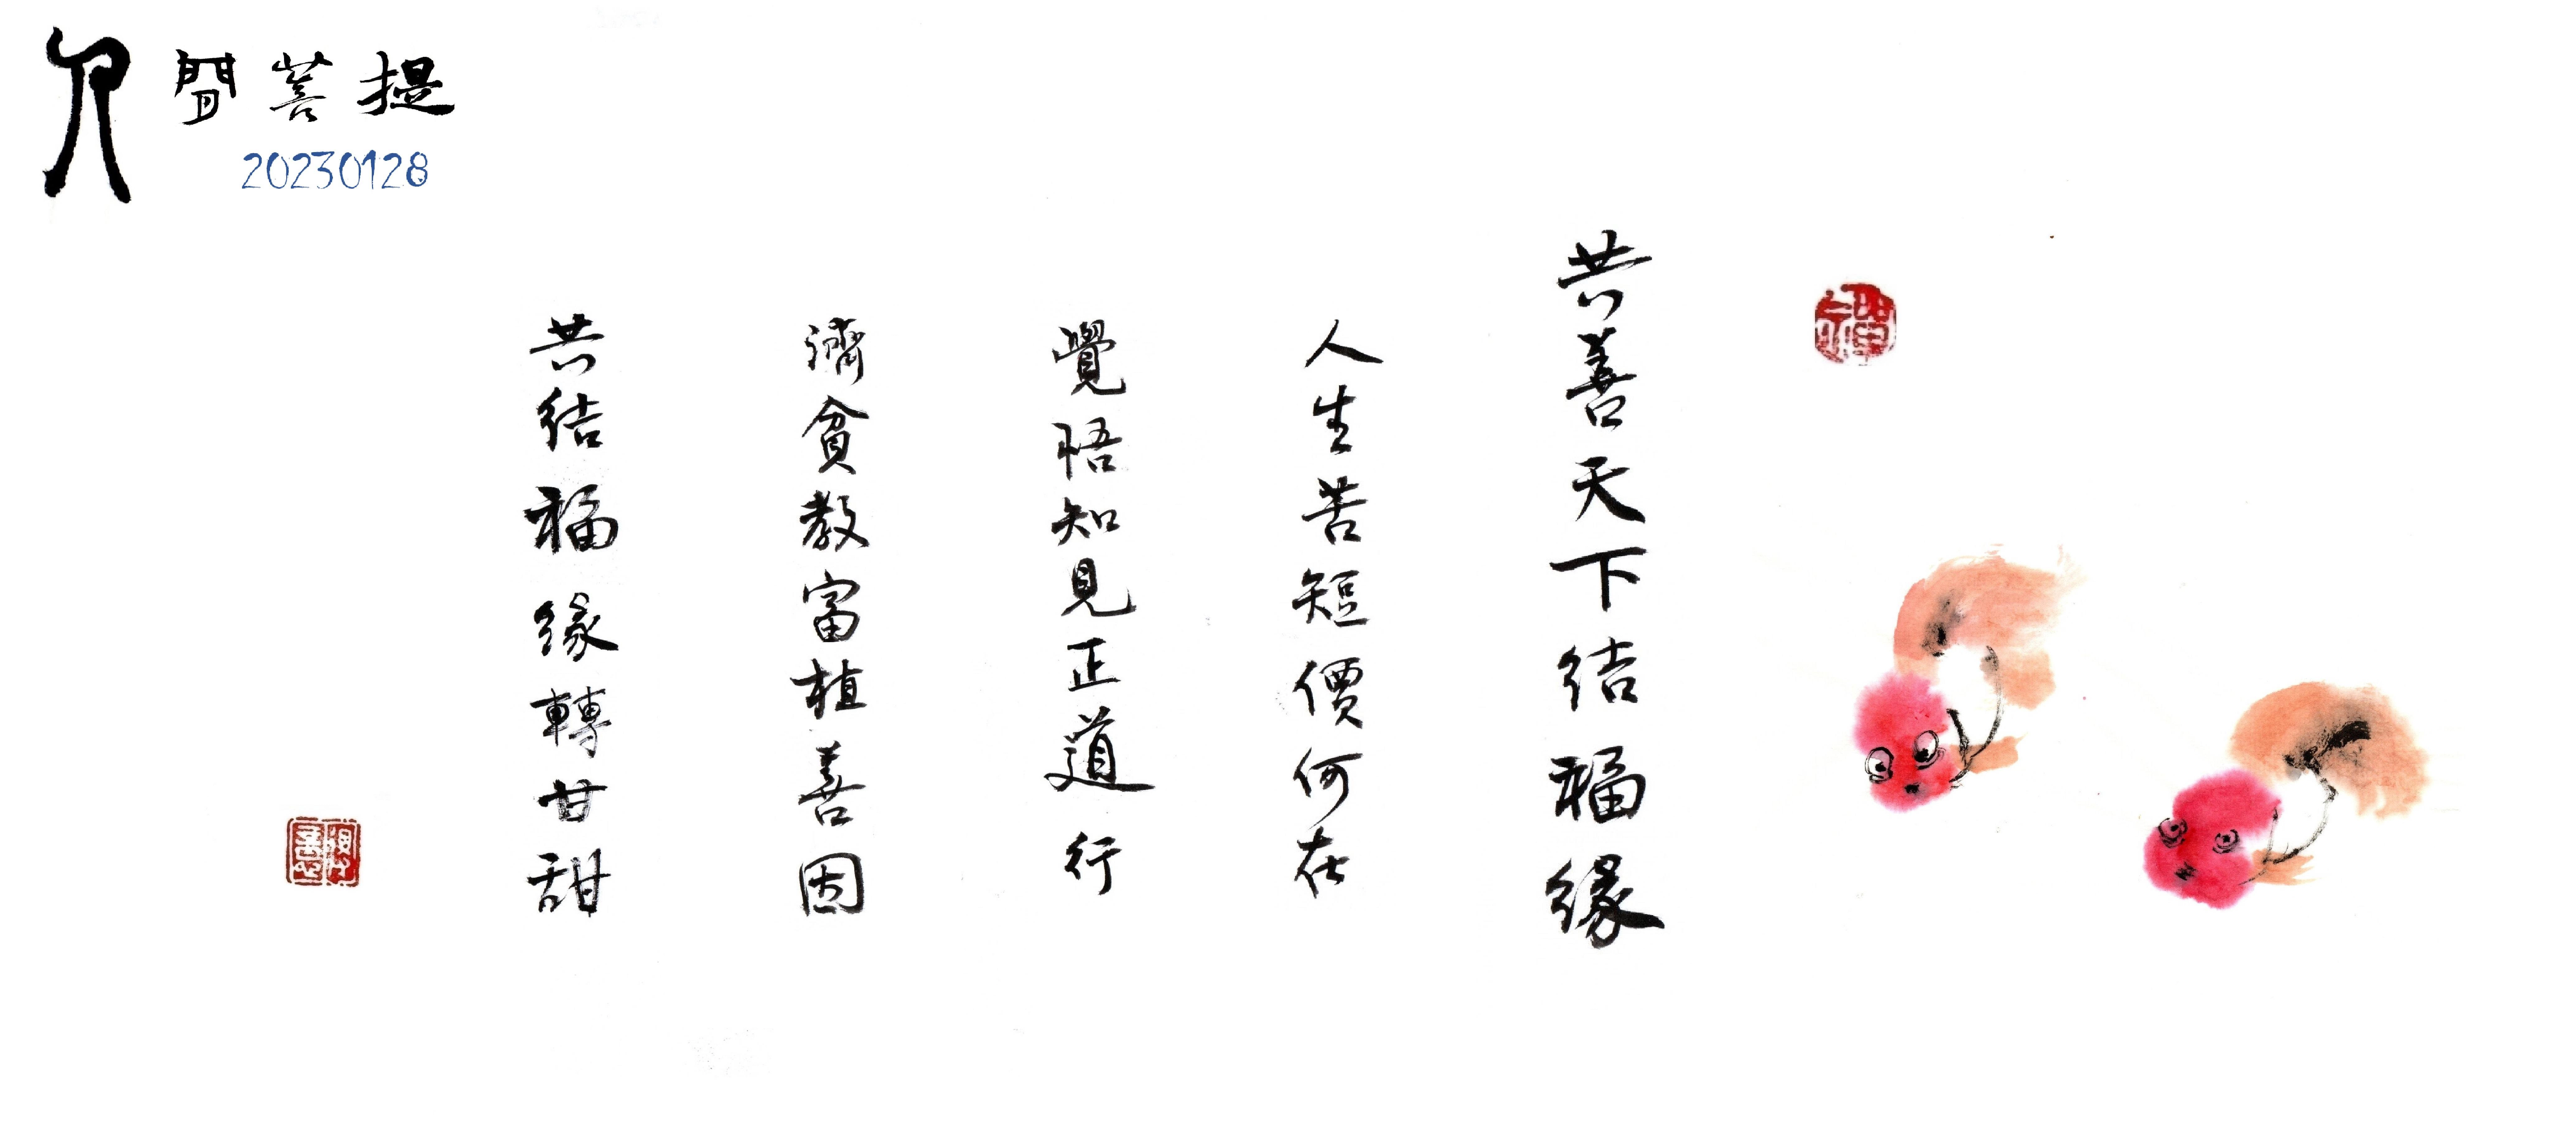 人間菩提
20230128
禪
共善天下結福緣
人生苦短價何在
覺悟知見正道行
濟貧教富植善因
共結福緣轉甘甜